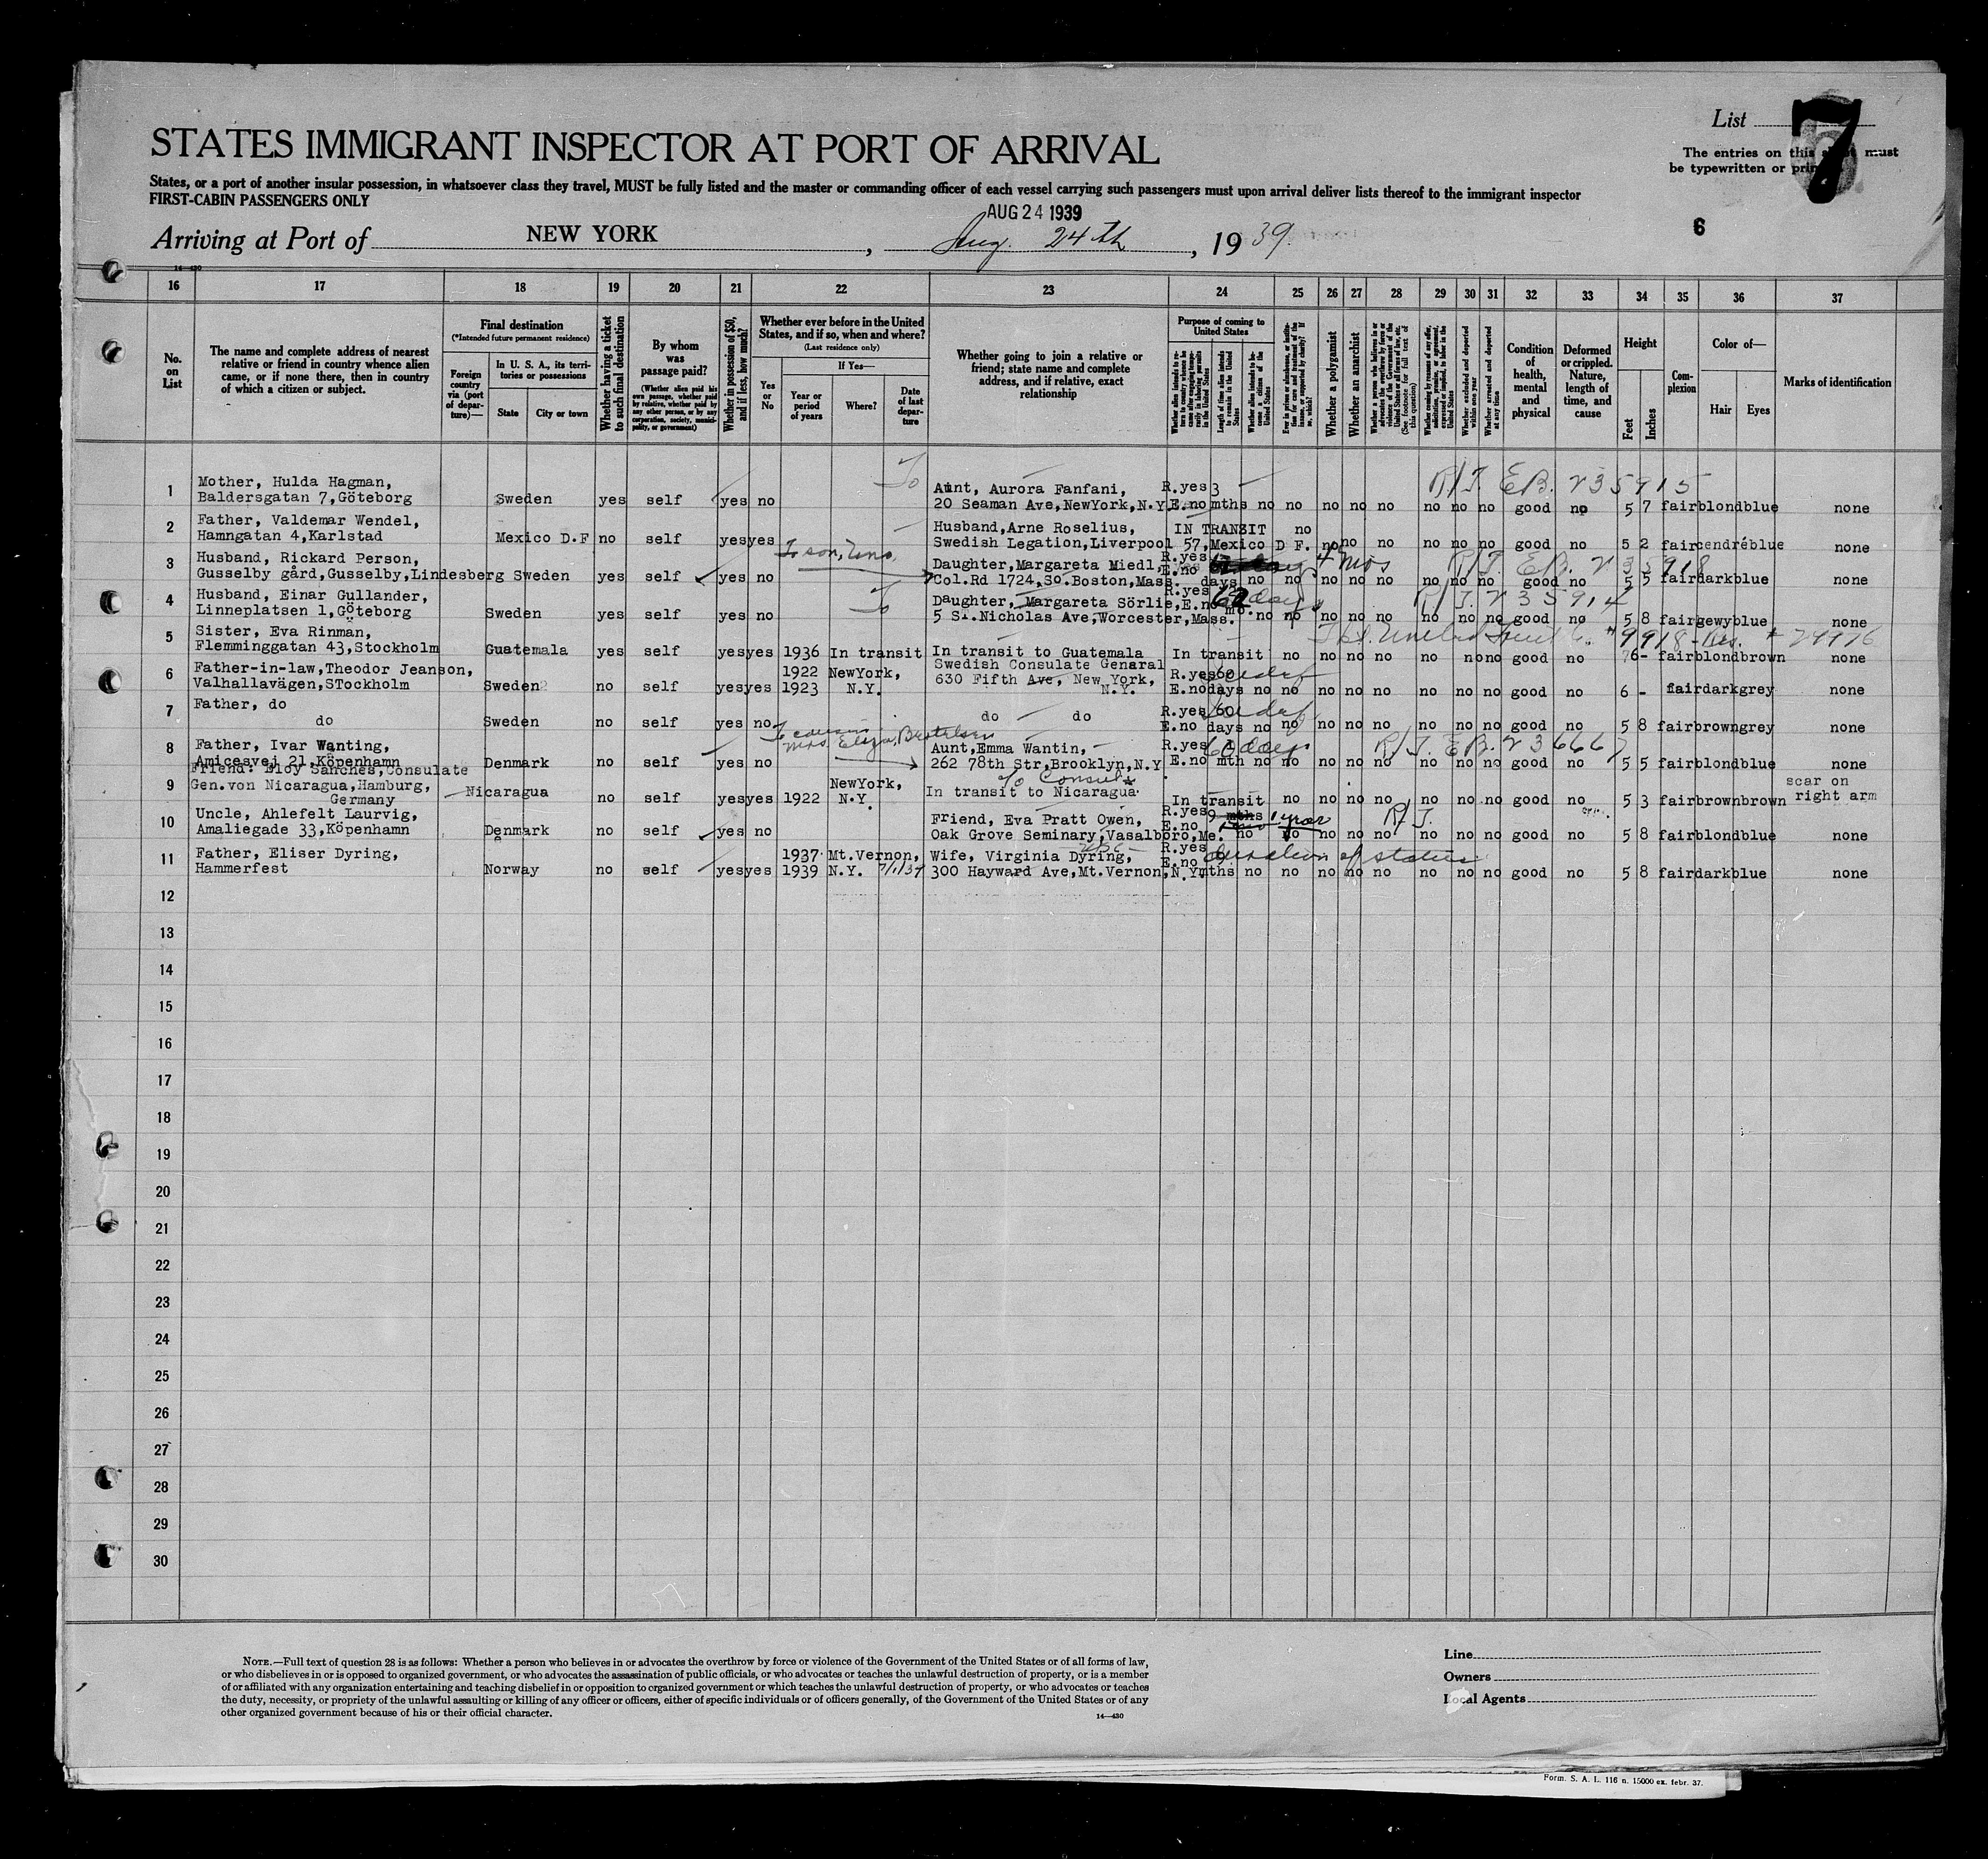 List 7
STATES IMMIGRANT INSPECTOR AT PORT OF ARRIVAL
The entries on this must
be typewritten or prin
States, or a port of another insular possession, in whatsoever class they travel, MUST be fully listed and the master or commanding officer of each vessel carrying such passengers must upon arrival deliver lists thereof to the immigrant inspector
FIRST-CABIN PASSENGERS ONLY
AUG 24 1939
6
Arriving at Port of NEW YORK, Aug. 24th, 1939.
14—430
16 17 18 19 20 21 22 23 24 25 26 27 28 29 30 31 32 33 34 35 36 37
No. on List
The name and complete address of nearest relative or friend in country whence alien came, or if none there, then in country of which a citizen or subject.
Final destination
(*Intended future permanent residence)
Foreign country via (port of departure)—
In U. S. A., its territories or possessions
State City or town
Whether having a ticket to such final destination
By whom was passage paid?
(Whether alien paid his own passage, whether paid by relative, whether paid by any other person, or by any corporation, society, municipality, or government)
Whether in possession of $50, and if less, how much?
Whether ever before in the United States, and if so, when and where?
(Last residence only)
Yes or No
If Yes—
Year or period of years
Where?
Date of last departure
Whether going to join a relative or friend; state name and complete address, and if relative, exact relationship
Purpose of coming to United States
Length of time alien intends to remain in the United States
Whether alien intends to become a citizen of the United States
Whether a polygamist
Whether an anarchist
Whether excluded and deported within one year
Whether arrested and deported at any time
Condition of health, mental and physical
Deformed or crippled. Nature, length of time, and cause
Height
Feet Inches
Complexion
Color of—
Hair Eyes
Marks of identification
To R/T. EB. 235915
1 Mother, Hulda Hagman, Aunt, Aurora Fanfani, R.yes 3
Baldersgatan 7,Göteborg Sweden yes self yes no 20 Seaman Ave,NewYork,N.Y. E.no mths no no no no no no no no good no 5 7 fair blond blue none
2 Father, Valdemar Wendel, Husband,Arne Roselius, IN TRANSIT no
Hamngatan 4,Karlstad Mexico D.F. no self yes yes Swedish Legation,Liverpool 57,Mexico D F. no no no no no no good no 5 2 fair cendré blue none
To son, R/T. EB. 235918
3 Husband, Rickard Person, Daughter,Margareta Miedl, R.yes 4 mos
Gusselby gård,Gusselby,Lindesberg Sweden yes self yes no Col.Rd 1724,So.Boston,Mass. E.no days no no no no no no no no good no 5 5 fair dark blue none
To R/T. 235914
4 Husband, Einar Gullander, Daughter, Margareta Sörlie, R.yes 60 days
Linneplatsen 1,Göteborg Sweden yes self yes no 5 St.Nicholas Ave,Worcester,Mass. E.no mo. no no no no no no no no good no 5 8 fair grey blue none
5 Sister, Eva Rinman, United Fruit Co. #9918 - Res. # 29976
Flemminggatan 43,Stockholm Guatemala yes self yes yes 1936 In transit In transit to Guatemala In transit no no no no no no no good no 6 - fair blond brown none
6 Father-in-law,Theodor Jeanson, 1922 NewYork, Swedish Consulate Genaral R.yes 60
Valhallavägen,STockholm Sweden no self yes yes 1923 N.Y. 630 Fifth Ave, New York, N.Y. E.no days no no no no no no no no good no 6 - fair dark grey none
7 Father, do do do R.yes 60
do Sweden no self yes no E.no days no no no no no no no no good no 5 8 fair brown grey none
To cousin Mrs. R/T. EB. 236667
8 Father, Ivar Wanting, Aunt,Emma Wantin, R.yes 60 days
Amicesvej 21,Köpenhamn Denmark no self yes no 262 78th Str,Brooklyn,N.Y. E.no mth no no no no no no no no good no 5 5 fair blond blue none
9 Friend: Eloy Sanches,Consulate to Consul
Gen.von Nicaragua,Hamburg, Nicaragua NewYork, In transit to Nicaragua scar on
Germany no self yes yes 1922 N.Y. In transit no no no no no no no good no 5 3 fair brown brown right arm
10 Uncle, Ahlefelt Laurvig, Friend, Eva Pratt Owen, R.yes 9 mths 1 year R/T.
Amaliegade 33,Köpenhamn Denmark no self yes no Oak Grove Seminary,Vasalboro,Me. E.no no no no no no no no no good no 5 8 fair blond blue none
11 Father, Eliser Dyring, 1937 Mt.Vernon, Wife, Virginia Dyring, R.yes duration of status
Hammerfest Norway no self yes yes 1939 N.Y. 300 Hayward Ave,Mt.Vernon,N.Y. E.no mths no no no no no no no no good no 5 8 fair dark blue none
12
13
14
15
16
17
18
19
20
21
22
23
24
25
26
27
28
29
30
NOTE.—Full text of question 28 is as follows: Whether a person who believes in or advocates the overthrow by force or violence of the Government of the United States or of all forms of law,
or who disbelieves in or is opposed to organized government, or who advocates the assassination of public officials, or who advocates or teaches the unlawful destruction of property, or is a member
of or affiliated with any organization entertaining and teaching disbelief in or opposition to organized government or which teaches the unlawful destruction of property, or who advocates or teaches
the duty, necessity, or propriety of the unlawful assaulting or killing of any officer or officers, either of specific individuals or of officers generally, of the Government of the United States or of any
other organized government because of his or their official character.
14—430
Line
Owners
Local Agents
Form. S. A. L. 116 n. 15000 ex. febr. 37.